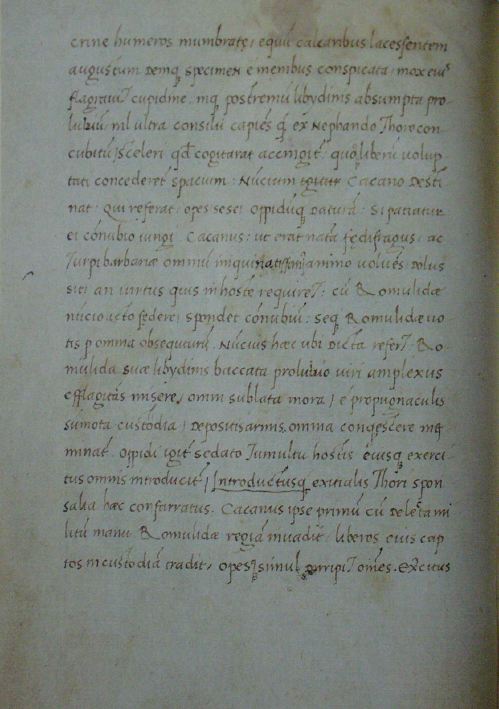 crine humeros inumbrāte, equū calcaribus lacessentem
augustum demq̄ specimen ē menibus conspicata, mox eius
flagravit cupidine. inq̄ postremū libydinis absumpta pro-
luviū nil ultra consilii capiēs q̄ ex nephando Thoro con-
cubitu, sceleri qđ cogitarat accingit. quo liberū volup
tati concederet spacium. Nūcium Cacano desti
nat. Qui referat, opes sese, oppidūq daturā. Si patiatur
ei cōnubio iungi. Cacanus, ut erat nata fedifragus, ac
Turpi barbariæ omniū animo volvēs dolus
siet an virtus quis in hoste requiret. cū Romulidæ
nūcio icto federe, spondet cōnubiū. Seq Romulidæ vo
tis p omma obsequuturū. Nūcius hæc ubi dicta refert. Ro-
mulida suæ libydinis baccata proluvio viri amplexus
efflagitās misere, omni sublata mora, e propugnaculis
sūmota custodia, depositis armis, omnia conqescere
minat. Oppidi igit sedato Tumultu hostis eiusq exerci
tus omnis introducit, Introductusq exitialis Thori spon
salia hæc confarratus. Cacanus ipse primū cū delecta mi
litū manu Romulidæ regiā invadit, liberos eius cap
tos in custodiā tradit, opesq simul arripit omēs. Exercitus